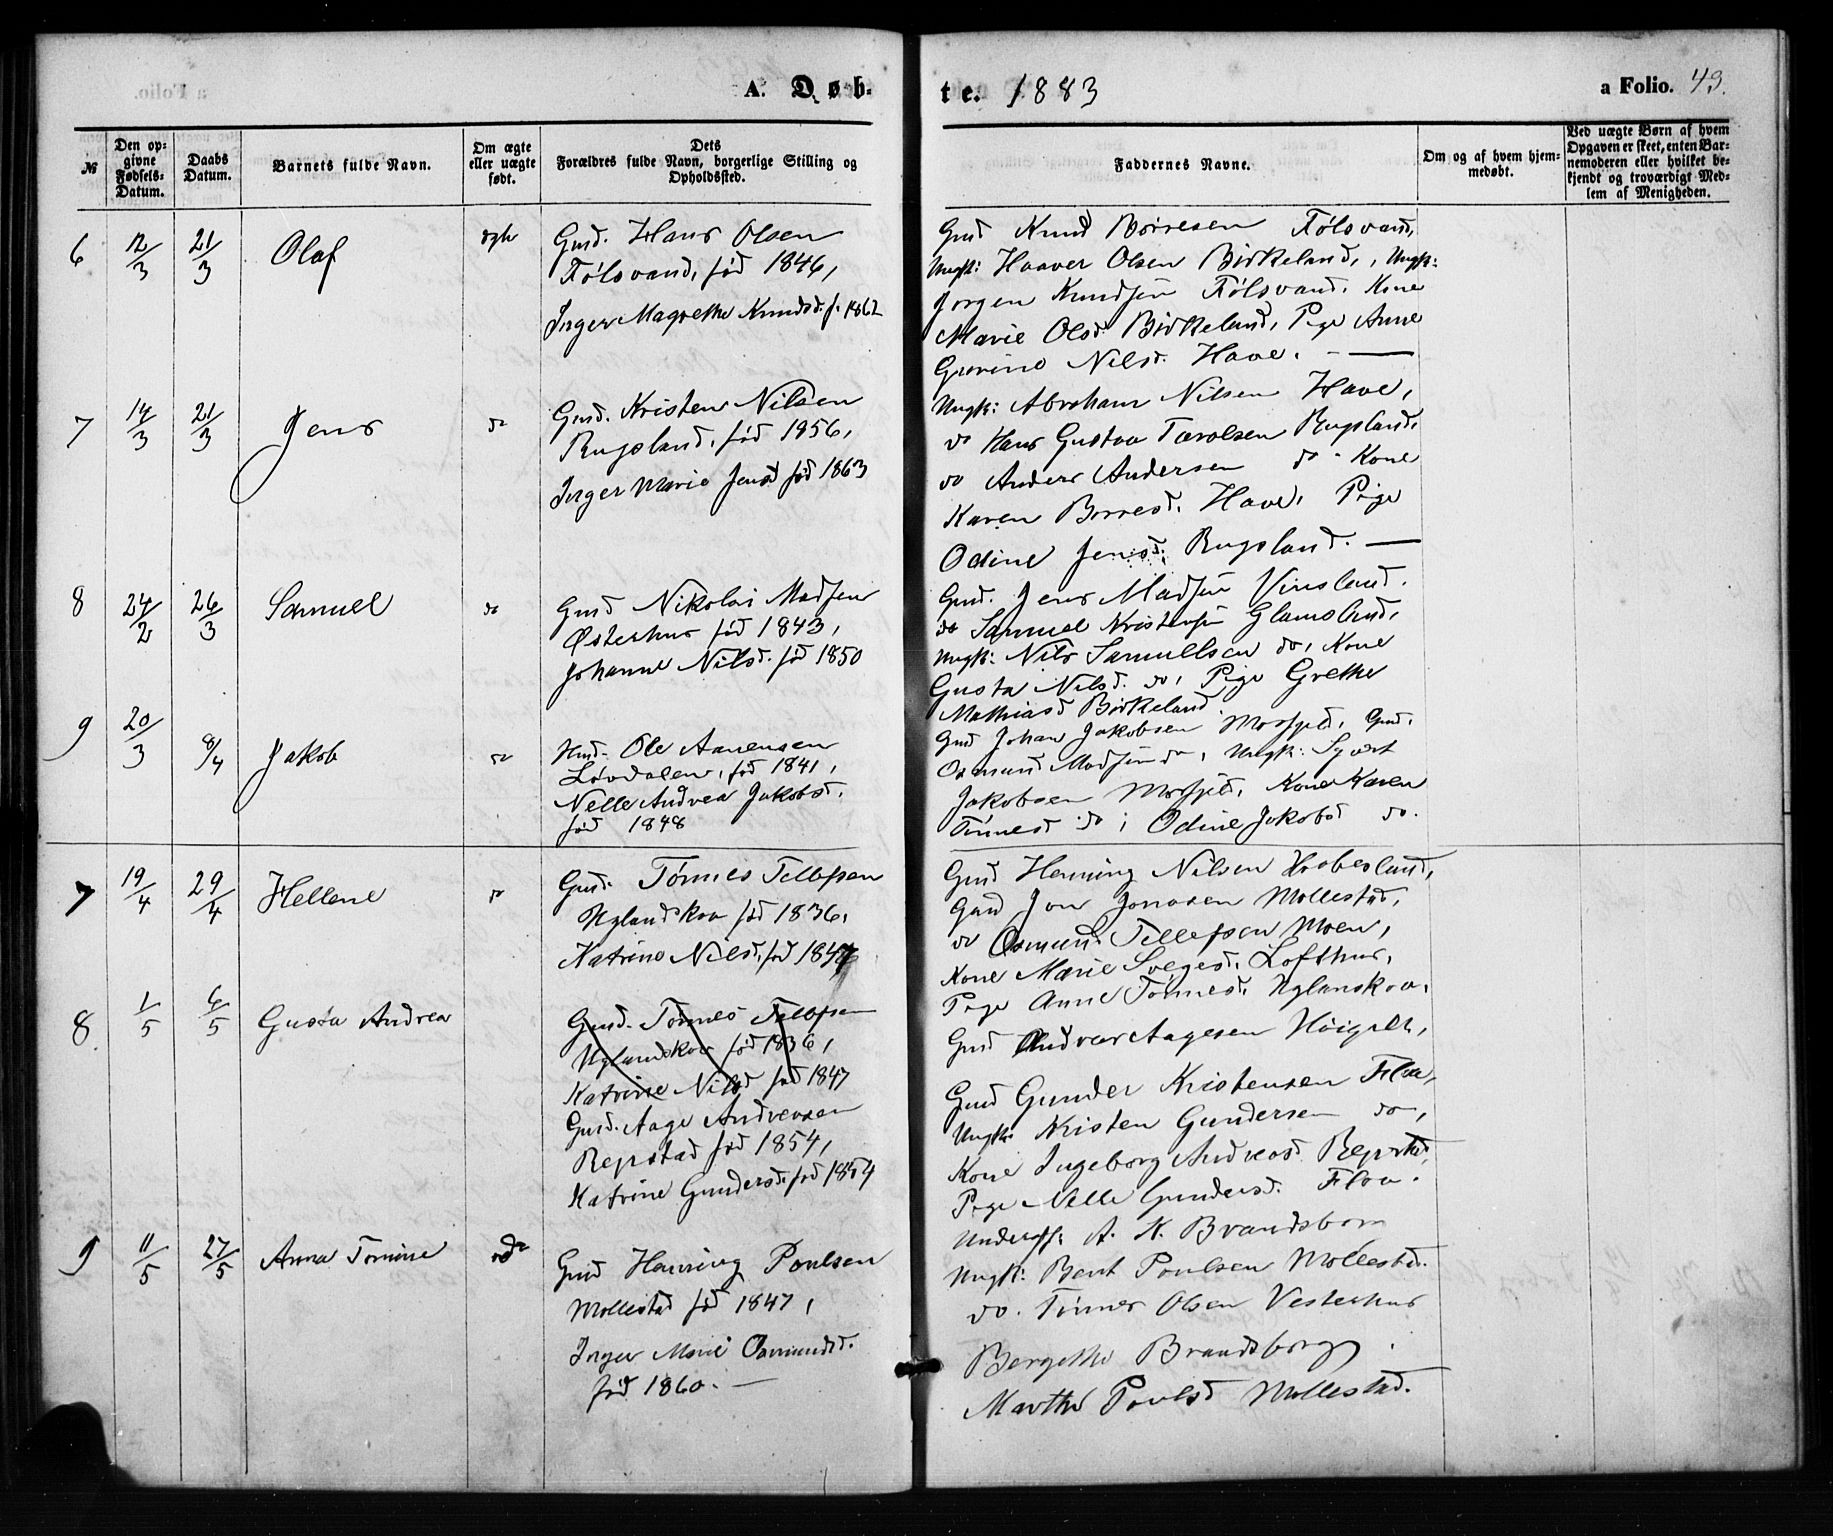 A. Døb-
te. 1883
a Folio. 43.
№
Den opgivne Fødsels-Datum.
Daabs Datum.
Barnets fulde Navn.
Om ægte eller uægte født.
Dets Forældres fulde Navn, borgerlige Stilling og Opholdssted.
Faddernes Navne.
Om og af hvem hjemmedøbt.
Ved uægte Børn af hvem Opgaven er skeet, enten Barnemoderen eller hvilket bekjendt og troværdigt Medlem af Menigheden.
6 12/3 21/3 Olaf ægte
Gmd. Hans Olsen
Følsvand, fød 1846,
Inger Magrethe Knudsd. f. 1862
Gmd Knud Børresen Følsvand,
Ungk: Haaver Olsen Birkeland, Ungk:
Jørgen Knudsen Følsvand. Kone
Marie Olsd Birkeland, Pige Anne
Gurine Nilsd. Have. —
7 14/3 21/3 Jens do
Gmd. Kristen Nilsen
Rugsland, fød 1856,
Inger Marie Jensd fød 1863
Ungk: Abraham Nilsen Have,
do Hans Gustav Tarolsen Rugsland,
do Anders Andersen do Kone
Karen Børresd. Have, Pige
Odine Jensd. Rugsland. —
8 24/2 26/3 Samuel do
Gmd Nikolai Madsen
Østerhus fød 1843,
Johanne Nilsd. fød 1850
Gmd. Jens Madsen Vinsland.
do Samuel Kristensen Glamsland,
Ungk: Nils Samuelsen do, Kone
Gusta Nilsd. do, Pige Grethe
Mathiasd Birkeland.
9 20/3 8/4 Jakob do
Hmd. Ole Aanensen
Løvdalen, fød 1841,
Nelle Andrea Jakobsd.
fød 1848
Gmd Johan Jakobsen Mosfjeld, Gmd.
Osmund Madsen do, Ungk: Syvert
Jakobsen Mosfjeld, Kone Karen
Tønnesd do, Odine Jakobsd do.
7 19/4 29/4 Hellene do
Gmd. Tønnes Tellefsen
Uglandskov fød 1836,
Katrine Nilsd. fød 1847
Gmd Henning Nilsen Håbesland,
Gmd Jon Jonasen Mollestad,
do Osmund Tellefsen Moen,
Kone Marie Lofthus,
Pige Anne Tønnesd. Uglanskov.
8 1/5 6/5 Gusta Andrea
Gmd. Tønnes Tellefsen
Uglandskov fød 1836,
Katrine Nilsd fød 1847
Gmd. Aage Andreasen
Repstad fød 1854,
Katrine Gundersd. fød 1854
Gmd Andreas Aagesen
Gmd Gunder Kristensen Flaa,
Ungk: Kristen Gundersen do,
Kone Ingeborg Andreasd Repstad,
Pige Nelle Gundersd. Flaa.
9 11/5 27/5 Anna Tomine do
Gmd Henning Poulsen
Mollestad fød 1847,
Inger Marie Osmundsd.
fød 1860. —
Underoff: A. K. Brandsborg
Ungk: Bent Poulsen Mollestad.
do. Tønnes Olsen Vesterhus
Bergethe Brandsborg.
Marthe Poulsd Mollestad.